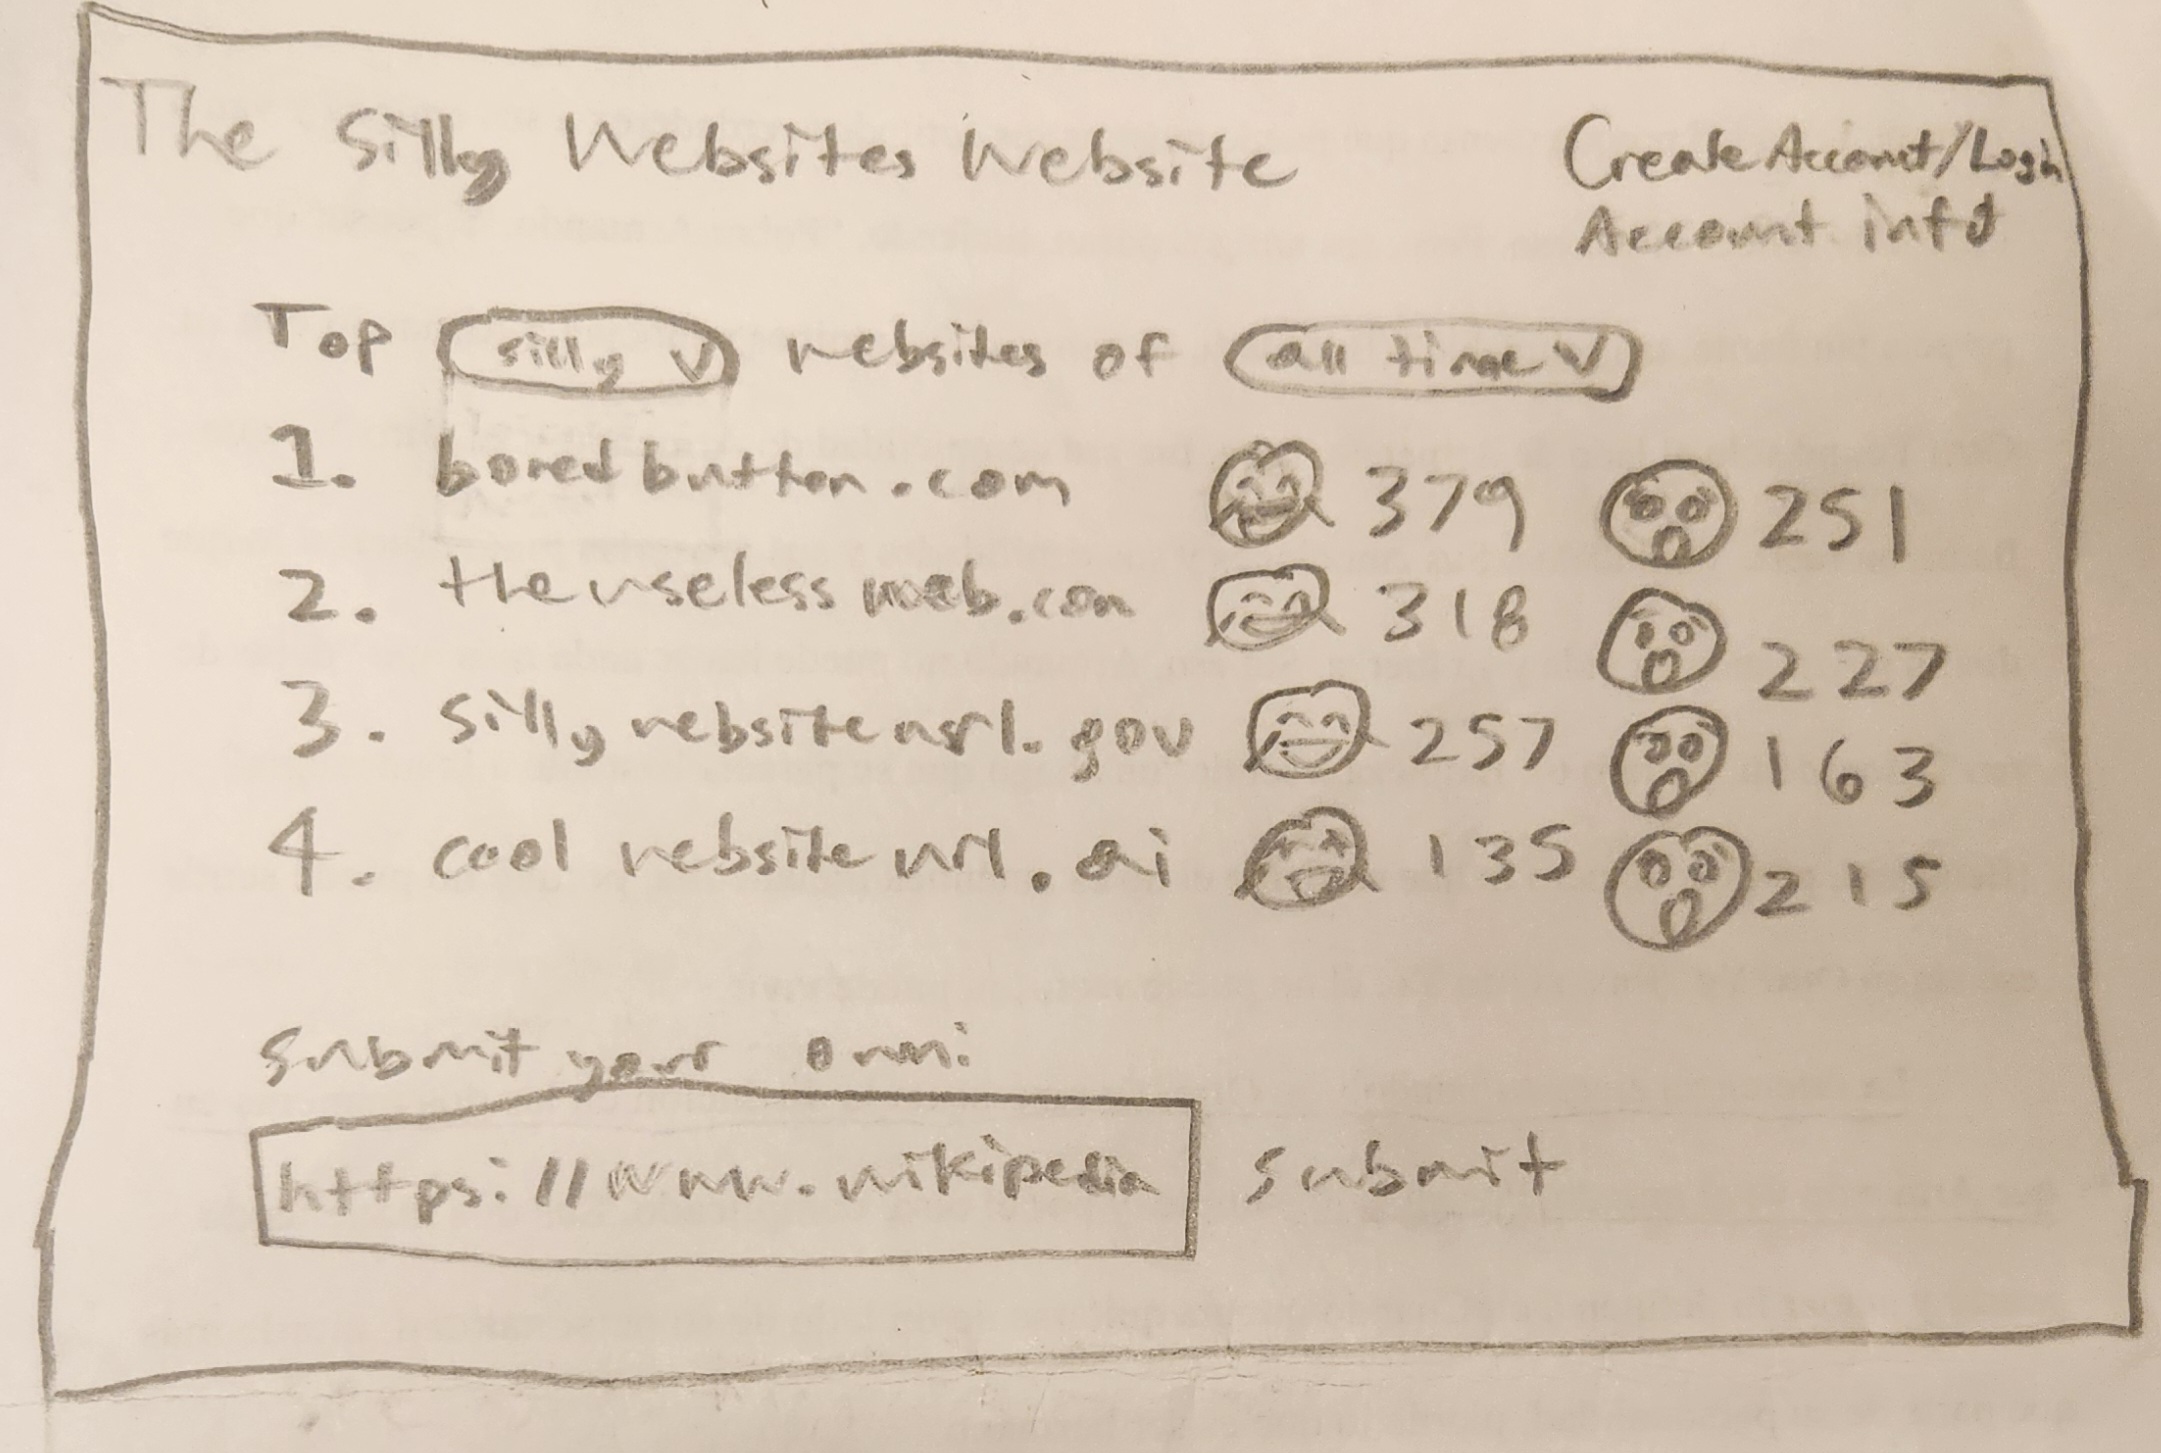 The Silly Websites Website
Create Account/Login
Account info
Top silly v websites of all time v
1. boredbutton.com 379 251
2. theuselessweb.com 318 227
3. sillywebsiteurl.gov 257 163
4. cool website url.ai 135 215
submit your own:
https://www.wikipedia submit